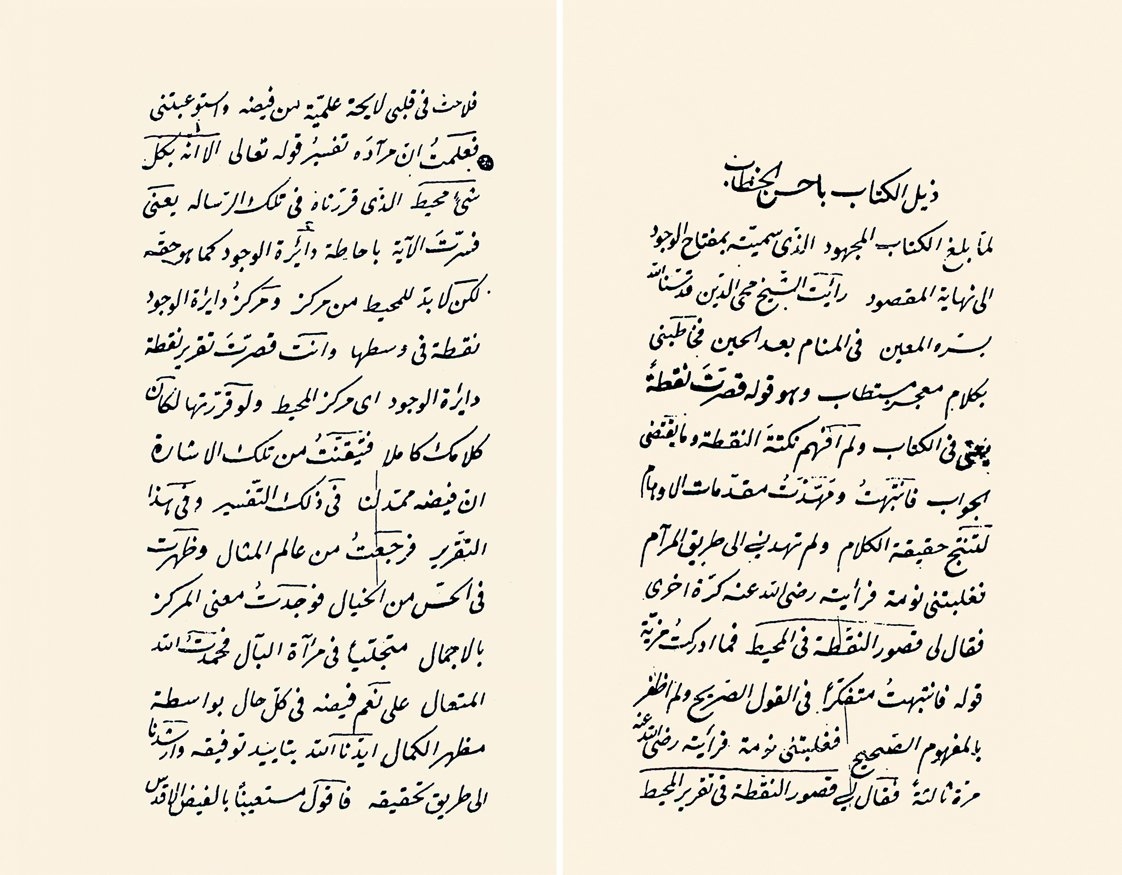 ذيل الكتاب باحسن الخطاب
لمّا بلغ الكتاب المجهود الذى سميته بمفتاح الوجود
الى نهاية المقصود رأيت الشيخ محى الدين قدسنا الله
بسره المعين فى المنام بعد الحين فخاطبنى
بكلام معجز مستطاب وهو قوله قصرت نقطةً
يعنى فى الكتاب ولم افهم نكتة النقطة وما يقتضى
الجواب فانتبهتُ ومهّدتُ مقدمات الاوهام
لتنتج حقيقة الكلام ولم تهدنى الى طريق المرآم
فغلبتنى نومة فرأيته رضى الله عنه كرّة اخرى
فقال لى قصور النقطة فى المحيط فما ادركتُ مزيّة
قوله فانتبهتُ متفكرًا فى القول الصريح ولم اظفر
بالمفهوم الصحيح فغلبتنى نومة فرأيته رضى الله عنه
مرّة ثالثةً فقال لى قصور النقطة فى تقرير المحيط
فلاحت فى قلبى لايحة علميّة من فيضه واستوعبتنى
فعلمتُ ان مرآده تفسيرُ قوله تعالى الا انّه بكل
شىءٍ محيط الذى قررناه فى تلك الرساله يعنى
فسرت الآية باحاطة دائرة الوجود كما هو حقه
لكن لا بدّ للمحيط من مركز ومركزُ دايرة الوجود
نقطة فى وسطها وانت قصرتَ تقرير نقطة
دايرة الوجود اى مركز المحيط ولو قررتها لكان
كلامك كاملا فتيقنتُ من تلك الاشارة
ان فيضه ممدّ لنا فى ذلك التفسير وفى هذا
التقرير فرجعتُ من عالم المثال وظهرت
فى الحسّ من الخيال فوجدتُ معنى المركز
بالاجمال متجلّيًا فى مرآة البآل فحمدتُ الله
المتعال على نعم فيضه فى كلّ حال بواسطة
مظهر الكمال ايّدنا الله بتاييد توفيقه وارشدنا
الى طريق تحقيقه فاقول مستعينًا بالفيض الاقدس